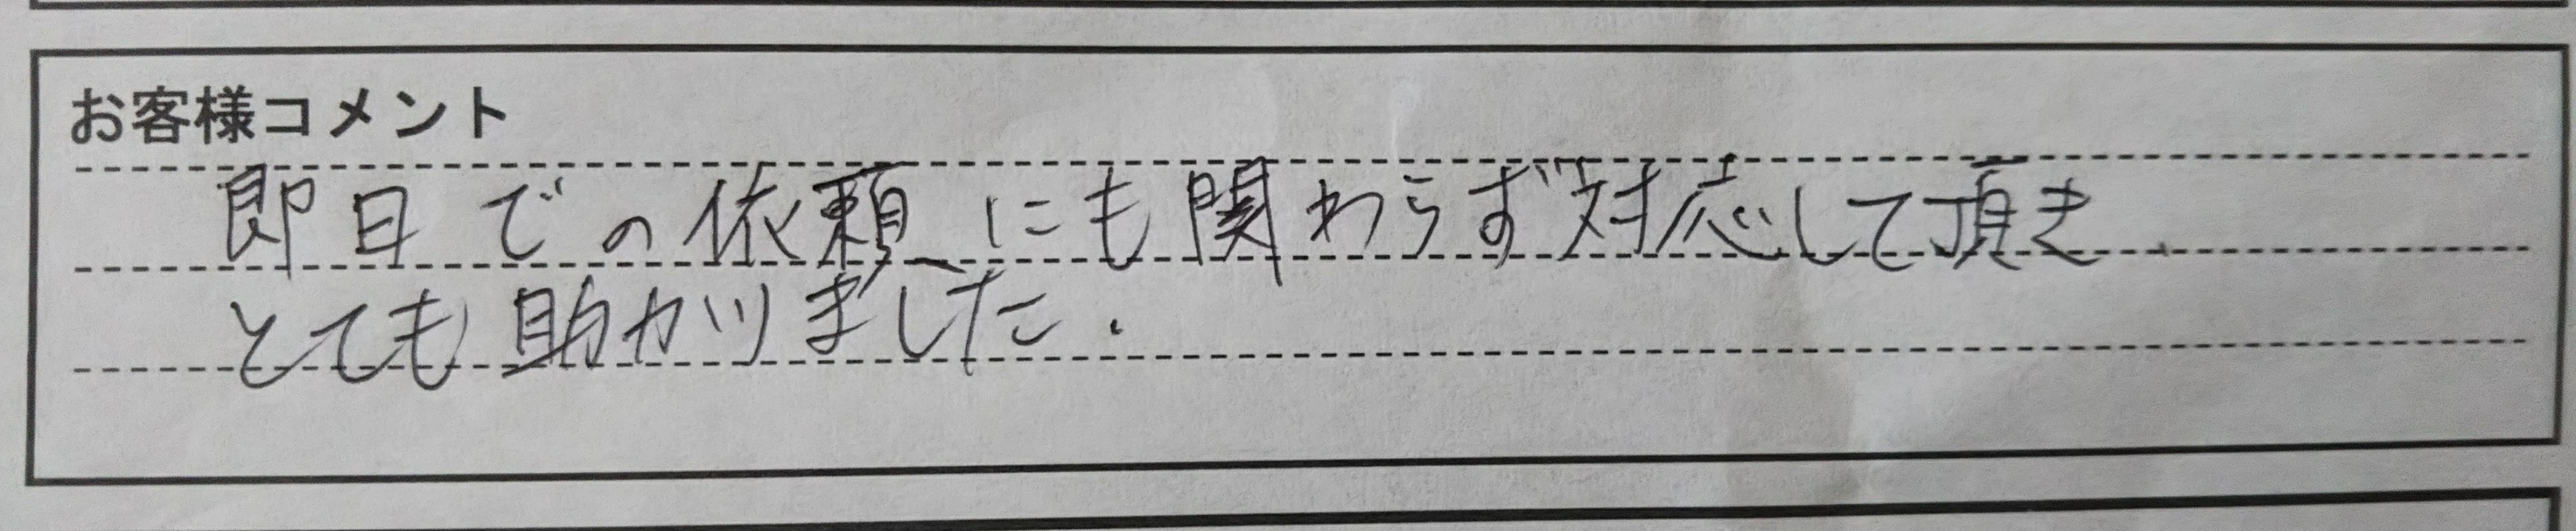 お客様コメント
即日での依頼にも関わらず対応して頂き
とても助かりました.